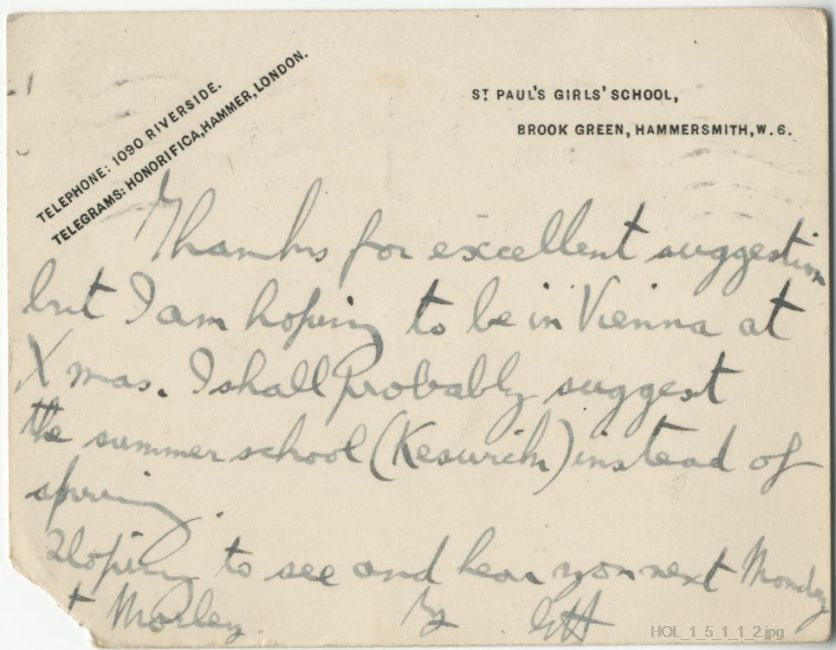 TELEPHONE: 1090 RIVERSIDE.
TELEGRAMS: HONORIFICA, HAMMER, LONDON.
ST PAUL'S GIRLS' SCHOOL,
BROOK GREEN, HAMMERSMITH, W. 6.
Thanks for excellent suggestion
but I am hoping to be in Vienna at
Xmas. I shall probably suggest
the summer school (Keswick) instead of
spring.
Hoping to see and hear you next Monday
+ Morley.
GH
HOL_1_5_1_1_2.jpg